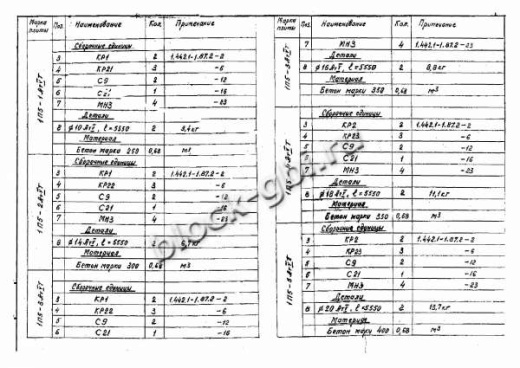 Марка плиты Поз. Наименование Кол. Примечание
Сборочные единицы
3 КР1 2 1.442.1-1.87.2-2
4 КР21 3 -6
5 С9 2 -12
6 С21 1 -16
7 МН3 4 -23
Детали
8 2 8,4 кг
Материал
Бетон марки 250 0,68 м3
Сборочные единицы
3 КР1 2 1.442.1-1.87.2-2
4 КР22 3 -6
5 С9 2 -12
6 С21 1 -16
7 МН3 4 -23
Детали
8 ℓ=5550
Материал
Бетон марки 300 0,68 м3
Сборочные единицы
3 КР1 2 1.442.1-1.87.2-2
4 КР22 3 -6
5 С9 2 -12
6 С21 1 -16
Марка плиты Поз. Наименование Кол. Примечание
7 МН3 4 -23
Детали
8 ℓ=5550 2
Материал
Бетон марки 350 0,68 м3
Сборочные единицы
3 КР2 2 1.442.1-1.87.2-2
4 КР23 3 -6
5 С9 2 -12
6 С21 1 -16
7 МН3 4 -23
Детали
8 ℓ=5550 2 11,1 кг
Материал
Бетон марки 350 0,68 м3
Сборочные единицы
3 КР2 2 1.442.1-1.87.2-2
4 КР23 3 -6
5 С9 2 -12
6 С21 1 -16
7 МН3 4 -23
Детали
8 ℓ=5550 2 13,7 кг
Материал
Бетон марки 400 0,68 м3
block-gbi.ru